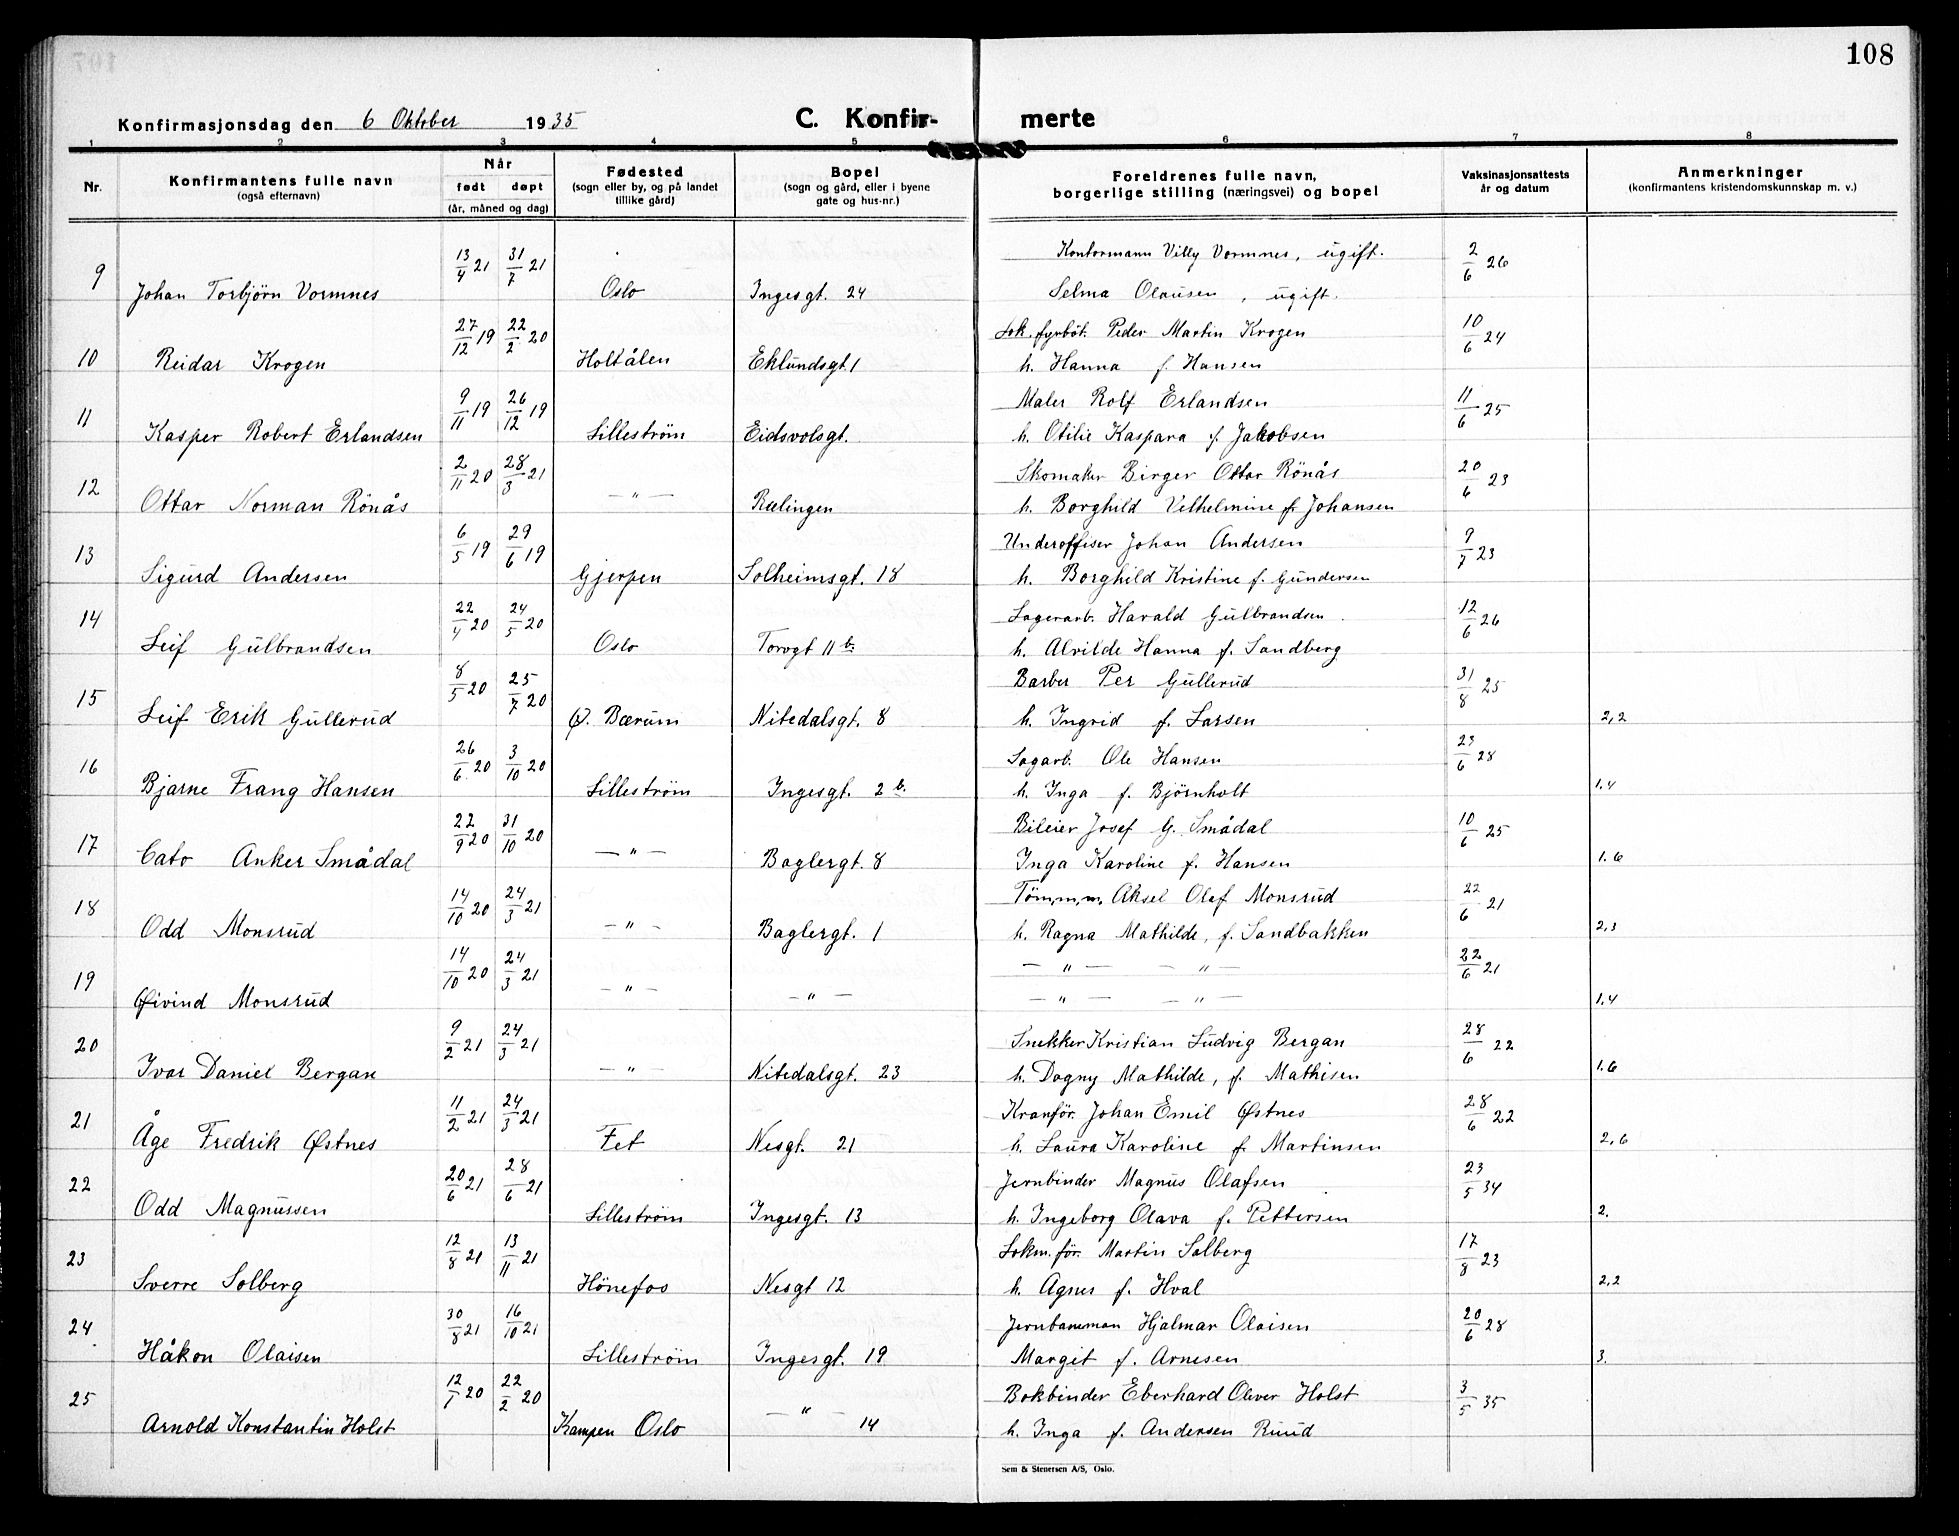 108
Konfirmasjonsdag den 6 Oktober 1935 C. Konfir- merte
1 2 3 4 5 6 7 8
Nr. Konfirmantens fulle navn (også efternavn) Når født døpt (år, måned og dag) Fødested (sogn eller by, og på landet tillike gård) Bopel (sogn og gård, eller i byene gate og hus-nr.) Foreldrenes fulle navn, borgerlige stilling (næringsvei) og bopel Vaksinasjonsattests år og datum Anmerkninger (konfirmantens kristendomskunnskap m. v.)
9 13/4 21 31/7 21 Kontormann Villy Vormnes, ugift. 2/6 26
Johan Torbjörn Vormnes Oslo Ingesgt. 24 Selma Olausen, ugift.
10 27/12 19 22/2 20 Lok.fyrböt. Peder Martin Krogen 10/6 24
Reidar Krogen Holtålen Eklundsgt. 1 h. Hanna f. Hansen
11 9/11 19 26/12 19 Maler Rolf Erlandsen 11/6 25
Kasper Robert Erlandsen Lilleström Eidsvolsgt. h. Otilie Kaspara f. Jakobsen
12 2/11 20 28/3 21 Skomaker Birger Ottar Rönås 20/6 23
Ottar Norman Rönås — " — Rælingen h. Borghild Vilhelmine f. Johansen
13 6/5 19 29/6 19 Underoffiser Johan Andersen 9/7 23
Sigurd Andersen Gjerpen Solheimsgt. 18 h. Borghild Kristine f. Gundersen
14 22/4 20 24/5 20 Lagerarb. Harald Gulbrandsen 12/6 26
Leif Gulbrandsen Oslo Torvgt 11 b. h. Alvilde Hanna f. Sandberg
15 8/5 20 25/7 20 Barber Per Gullerud 31/8 25
Leif Erik Gullerud Ø. Bærum Nitedalsgt. 8 h. Ingrid f. Larsen 2,2
16 26/6 20 3/10 20 Sagarb. Ole Hansen 23/6 28
Bjarne Frang Hansen Lilleström Ingesgt. 2 b. h. Inga f. Björnholt 1,4
17 22/9 20 31/10 20 Bileier Josef G. Smådal 10/6 25
Cato Anker Smådal — " — Baglergt. 8 Inga Karoline f. Hansen 1.6
18 14/10 20 24/3 21 Töm.m.m. Aksel Olaf Monsrud 22/6 21
Odd Monsrud — " — Baglergt. 1 h. Ragna Mathilde, f. Sandbakken 2,3
19 14/10 20 24/3 21 — " — — " — 22/6 21
Øivind Monsrud — " — — " — — " — — " — 1,4
20 9/2 21 24/3 21 Snekker Kristian Ludvig Bergan 28/6 22
Ivar Daniel Bergan — " — Nitedalsgt. 23 h. Dagny Mathilde, f. Mathisen 1.6
21 11/2 21 24/3 21 Kranför. Johan Emil Østnes 28/6 22
Åge Fredrik Østnes Fet Nesgt. 21 h. Laura Karoline f. Martinsen 2,6
22 20/6 21 28/6 21 Jernbinder Magnus Olafsen 23/5 34
Odd Magnussen Lilleström Ingesgt. 13 h. Ingeborg Olava f. Pettersen 2.
23 12/8 21 13/11 21 Lokm.för. Martin Solberg 17/8 23
Sverre Solberg Hönefos Nesgt 12 h. Agnes f. Hval 2,2
24 30/8 21 16/10 21 Jernbaneman Hjalmar Olaisen 20/6 28
Håkon Olaisen Lilleström Ingesgt. 19 Margit f. Arnesen 3.
25 12/1 20 22/2 20 Bokbinder Eberhard Oliver Holst 3/5 35
Arnold Konstantin Holst Kampen Oslo — " — 14 h. Inga f. Andersen Ruud
Sem & Stenersen A/S, Oslo.